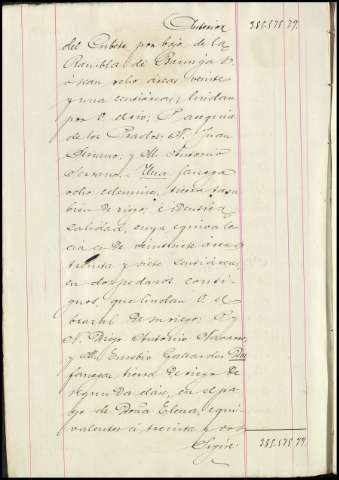 Anterior 385.575.79.
del Cubete por bajo de la
Rambla de
ó sean ocho áreas veinte
y una centiáreas; lindan
por P. el rio;
de los Prados; N. Juan
Serrano; y M. Antonio
Serrano. Una fanega
ocho celemines tierra tam
bien de riego, é identica
calidad, cuya equivalen
cia es de veintisiete áreas
treinta y siete centiáreas
en dos pedazos conti
guos, que lindan el
brazal de su riego; P. y
N. Diego Antonio Navarro,
y M. Eusebio Gallardo.
fanegas tierra de riego de
segunda clase, en el pa
go de Doña Elena, equi
valentes á treinta y dos
Sigue 385.575.79